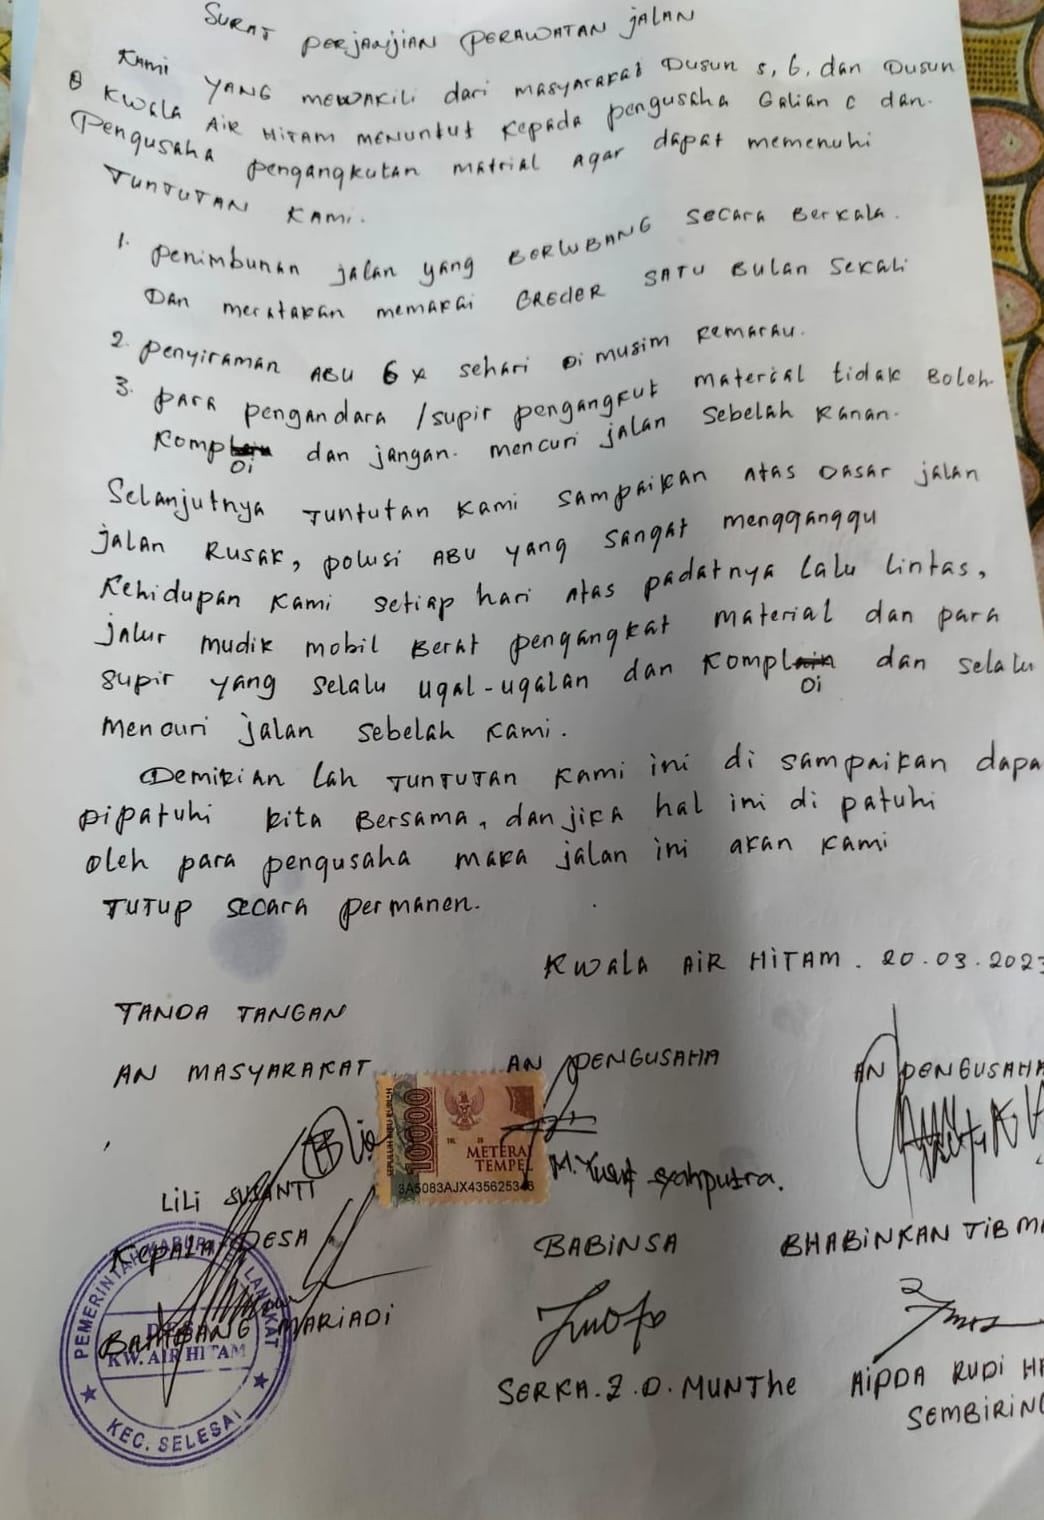 SURAT PERJANJIAN PERAWATAN JALAN
KAMI YANG MEWAKILI dari MASYARAKAT Dusun 5, 6, dan Dusun
8 KWALA AIR HITAM MENUNTUT KEPADA pengusaha Galian C dan
Pengusaha pengangkutan matrial agar dapat memenuhi
TUNTUTAN KAMI.
1. penimbunan jalan yang BERLUBANG secara Berkala.
DAN meratakan memakai GREDER SATU Bulan Sekali
2. penyiraman ABU 6 x sehari Di musim Kemarau.
3. para pengandara / supir pengangkut material tidak Boleh
Komploi dan jangan mencuri jalan sebelah Kanan.
Selanjutnya Tuntutan Kami sampaikan atas DASAR jalan
jalan Rusak, polusi ABU yang sangat mengganggu
Kehidupan Kami setiap hari atas padatnya Lalu lintas,
jalur mudik mobil Berat pengangkat material dan para
supir yang selalu ugal-ugalan dan Komploi dan selalu
mencuri jalan sebelah Kami.
Demikian Lah TUNTUTAN Kami ini di sampaikan dapa
Dipatuhi kita Bersama, dan jika hal ini di patuhi
oleh para pengusaha maka jalan ini akan Kami
TUTUP secara permanen.
KWALA AIR HITAM. 20.03.2023
TANDA TANGAN
AN MASYARAKAT AN PENGUSAHA AN PENGUSAHA
SEPULUH RIBU RUPIAH
10000
METERAI
TEMPEL
3A5083AJX435625346
LiLi SUSANTI M. Yusuf Syahputra.
KEPALA DESA BABINSA BHABINKAN TIBMA
BAMBANG MARIADI SERKA. Z. D. MUNTHE AIPDA RUDI HA
SEMBIRING
PEMERINTAH KABUPATEN LANGKAT
DESA
KW. AIR HITAM
KEC. SELESAI